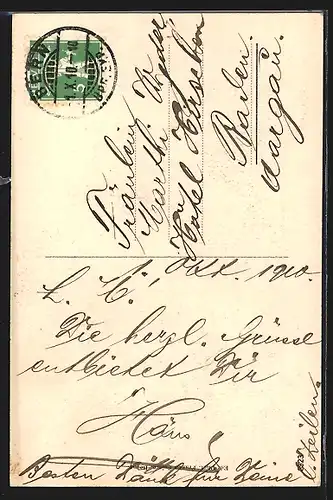 Fräulein
Marthi
Hotel Hirschen
Baden
Aargau.
Okt. 1910.
L. M!
Die herzl. Grüsse
entbietet Dir
Hans
Besten Dank für Deine
Zeilen.